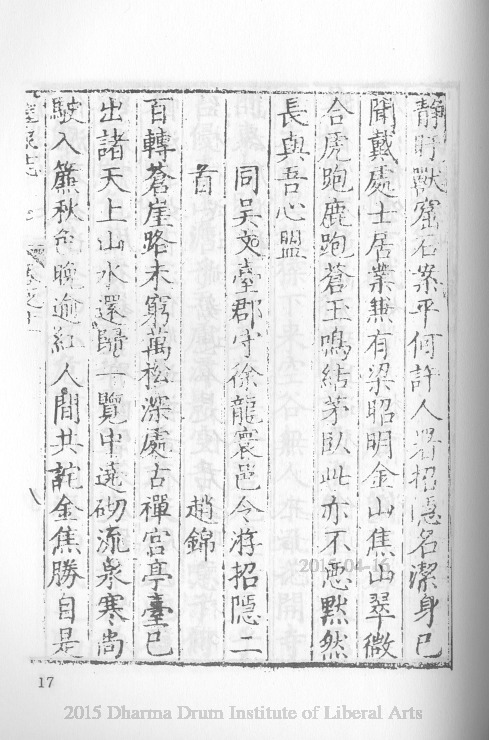 靜時獸窟石案平何許人畧招隱名潔身已
聞戴處士居業無有梁昭明金山焦山翠微
合虎跑鹿跑蒼玉鳴結茅臥此亦不惡默然
長與吾心盟
同吳文臺郡守徐龍寰邑令游招隱二
首　趙錦
百轉蒼崖路未窮萬松深處古禪宮亭臺已
出諸天上山水還歸一覽中遶砌流泉寒尚
駛入簾秋色晚逾紅人間共詫金焦勝自是
卷之十
2015-04-16
17
2015 Dharma Drum Institute of Liberal Arts